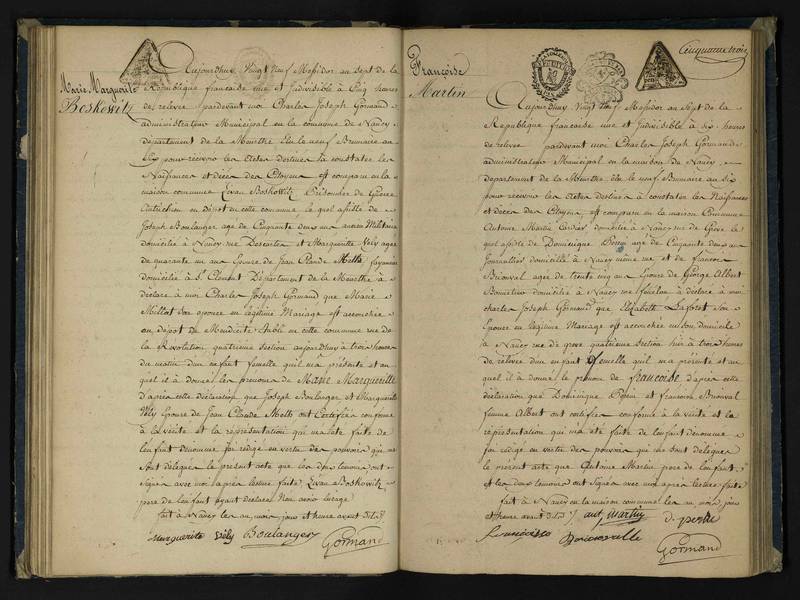 Marie Marguerite
Beskowitz
Aujourdhuy Vingt neuf Messidor an Sept de la
Republique francaise une et Indivisible à Cinq heures
de relevée pardevant moi Charles Joseph Gormand
administrateur Municipal en la commune de Nancy
departement de la Meurthe Elu le neuf Brumaire an
Six pour recevoir les Actes destinés à constater les
Naissances et décès des Citoyens est comparu en la
maison commune Levan Boskowitz Prisonnier de Guerre
Autrichien en dépot en cette commune, le quel assisté de
Joseph Boulanger age de Cinquante deux ans ancien Militaire
domicilié à Nancy rue Descartes et Marguerite Vely agée
de quarante un ans Epouse de Jean Claude Motts fayancier
domicilié à St Clement Département de la Meurthe à
déclaré à moi Charles Joseph Gormand que Marie
Millot Son epouse en legitime Mariage est accouchée
au depot de Mendicité Etabli en cette commune rue de
la Revolution quatrieme Section aujourdhuy à trois heures
du matin d'un enfant femelle quil m'a présenté et au
quel il a donné les prenoms de Marie Marguerite
d'après cette déclaration que Joseph Boulanger et Marguerite
Vely Epouse de Jean Claude Motts ont Certifiée conforme
à la vérité et la représentation qui m'a été faite de
l'enfant denommé j'ai rédigé en vertu des pouvoirs qui me
Sont délégués le present acte que les deux temoins ont
Signés avec moi après lecture faite, Levan Boskowitz
pere de l'enfant ayant déclaré Non avoir l'usage
fait à Nancy les an, mois jour et heure avant dits
Marguerite Vely Boulanger Gormand
Cinquante trois
Françoise
Martin
Aujourdhuy Vingt Neuf Messidor an Sept de la
Republique francaise une et Indivisible à six heures
de relevée pardevant moi Charles Joseph Gormand
administrateur Municipal en la maison de Nancy
Departement de la Meurthe élu le neuf Brumaire an six
pour recevoir les Actes destinés à constater les Naissances
et décès des Citoyens, est comparu en la maison Commune
Antoine Martin domicilié à Nancy rue de Grève le
quel assisté de Dominique age de Cinquante deux ans
Journallier domicilié à Nancy même rue et de francoise
Brionval agée de trente cinq ans Epouse de George Albert
domicilié à Nancy rue à déclaré à moi
charles Joseph Gormand que Elizabeth Laforet Son
Epouse en legitime Mariage est accouchée en son domicile
à Nancy rue de greve quatrieme Section hier à trois heures
de relevée d'un enfant femelle quil m'a présenté et au
quel il à donné le prenom de francoise d'après cette
déclaration que Dominique et francoise Brionval
femme Albert ont certifiée conforme à la vérité et la
représentation qui m'a été faite de l'enfant denommé
j'ai rédigé en vertu des pouvoirs qui me sont délégués
le present acte que Antoine Martin pere de l'enfant
et les deux temoins ont Signés avec moi après lecture faite
fait à Nancy en la maison commune les an mois, jour
et heure avant dits ant martin
Gormand